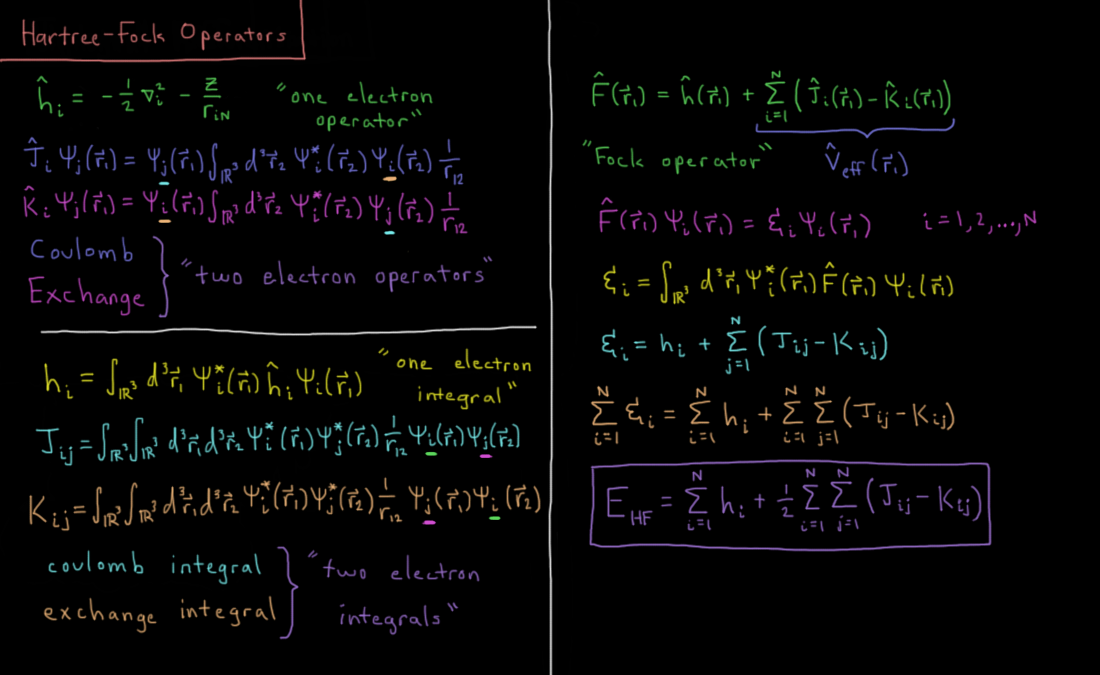 Hartree-Fock Operators
ĥᵢ = -½ ∇ᵢ² - Z/r_iN "one electron
operator"
Ĵᵢ Ψⱼ(r⃗₁) = Ψⱼ(r⃗₁) ∫_ℝ³ d³r⃗₂ Ψᵢ*(r⃗₂) Ψᵢ(r⃗₂) 1/r₁₂
K̂ᵢ Ψⱼ(r⃗₁) = Ψᵢ(r⃗₁) ∫_ℝ³ d³r⃗₂ Ψᵢ*(r⃗₂) Ψⱼ(r⃗₂) 1/r₁₂
Coulomb
Exchange
"two electron operators"
hᵢ = ∫_ℝ³ d³r⃗₁ Ψᵢ*(r⃗₁) ĥᵢ Ψᵢ(r⃗₁) "one electron
integral"
Jᵢⱼ = ∫_ℝ³ ∫_ℝ³ d³r⃗₁ d³r⃗₂ Ψᵢ*(r⃗₁) Ψⱼ*(r⃗₂) 1/r₁₂ Ψᵢ(r⃗₁) Ψⱼ(r⃗₂)
Kᵢⱼ = ∫_ℝ³ ∫_ℝ³ d³r⃗₁ d³r⃗₂ Ψᵢ*(r⃗₁) Ψⱼ*(r⃗₂) 1/r₁₂ Ψⱼ(r⃗₁) Ψᵢ(r⃗₂)
coulomb integral
exchange integral
"two electron
integrals"
F̂(r⃗₁) = ĥ(r⃗₁) + Σ_{i=1}^{N} (Ĵᵢ(r⃗₁) - K̂ᵢ(r⃗₁))
"Fock operator" V̂_eff(r⃗₁)
F̂(r⃗₁) Ψᵢ(r⃗₁) = ℰᵢ Ψᵢ(r⃗₁) i = 1, 2, ..., N
ℰᵢ = ∫_ℝ³ d³r⃗₁ Ψᵢ*(r⃗₁) F̂(r⃗₁) Ψᵢ(r⃗₁)
ℰᵢ = hᵢ + Σ_{j=1}^{N} (Jᵢⱼ - Kᵢⱼ)
Σ_{i=1}^{N} ℰᵢ = Σ_{i=1}^{N} hᵢ + Σ_{i=1}^{N} Σ_{j=1}^{N} (Jᵢⱼ - Kᵢⱼ)
E_HF = Σ_{i=1}^{N} hᵢ + ½ Σ_{i=1}^{N} Σ_{j=1}^{N} (Jᵢⱼ - Kᵢⱼ)